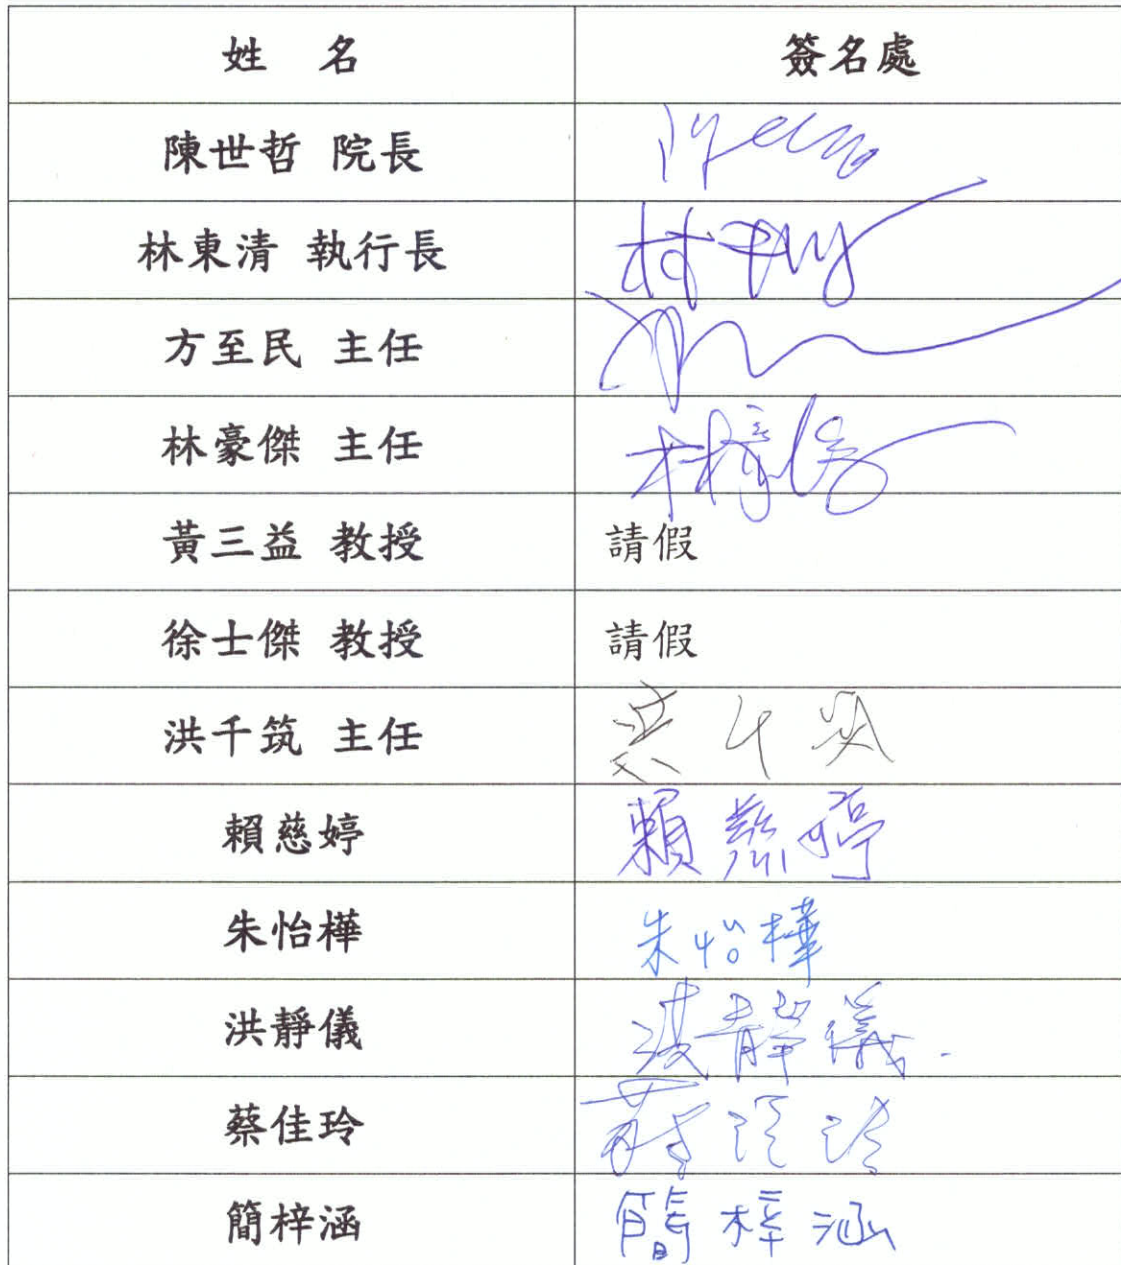 姓 名 簽名處
陳世哲 院長
林東清 執行長
方至民 主任
林豪傑 主任 林豪傑
黃三益 教授 請假
徐士傑 教授 請假
洪千筑 主任
賴慈婷 賴慈婷
朱怡樺 朱怡樺
洪靜儀 洪靜儀
蔡佳玲
簡梓涵 簡梓涵